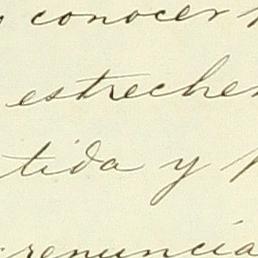 conocer
estreche
tida y
renuncia